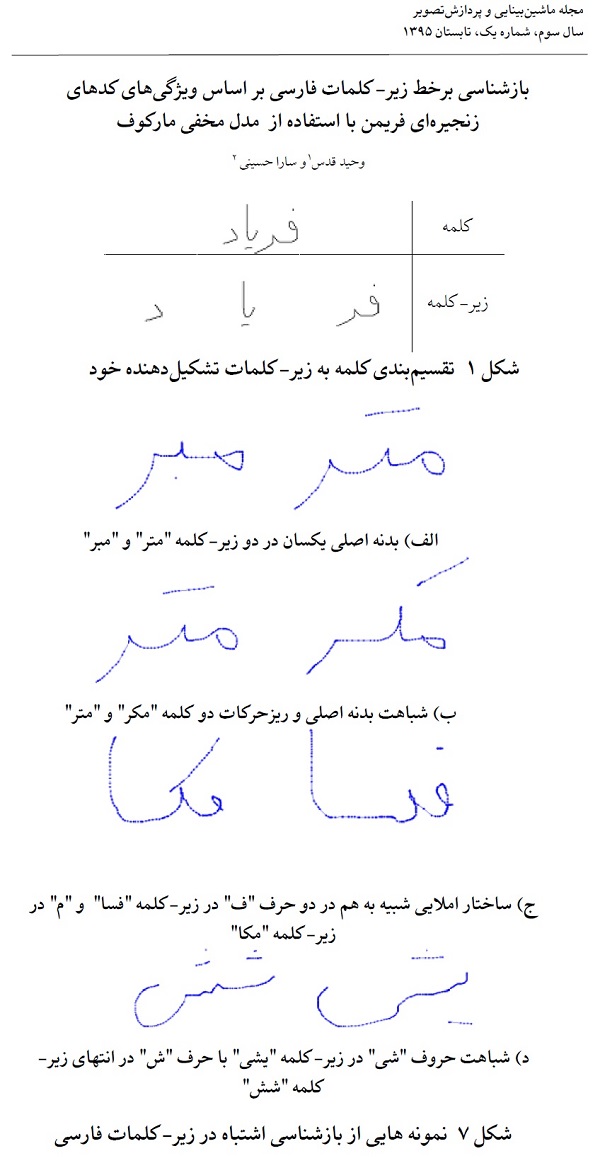 مجله ماشین‌بینایی و پردازش‌تصویر
سال سوم، شماره یک، تابستان ۱۳۹۵
بازشناسی برخط زیر-کلمات فارسی بر اساس ویژگی‌های کدهای
زنجیره‌ای فریمن با استفاده از مدل مخفی مارکوف
وحید قدس۱ و سارا حسینی ۲
کلمه فریاد
زیر-کلمه فر یا د
شکل ۱ تقسیم‌بندی کلمه به زیر-کلمات تشکیل‌دهنده خود
متر مبر
الف) بدنه اصلی یکسان در دو زیر-کلمه "متر" و "مبر"
مکر متر
ب) شباهت بدنه اصلی و ریزحرکات دو کلمه "مکر" و "متر"
فسا مکا
ج) ساختار املایی شبیه به هم در دو حرف "ف" در زیر-کلمه "فسا" و "م" در
زیر-کلمه "مکا"
یشی شش
د) شباهت حروف "شی" در زیر-کلمه "یشی" با حرف "ش" در انتهای زیر-
کلمه "شش"
شکل ۷ نمونه هایی از بازشناسی اشتباه در زیر-کلمات فارسی